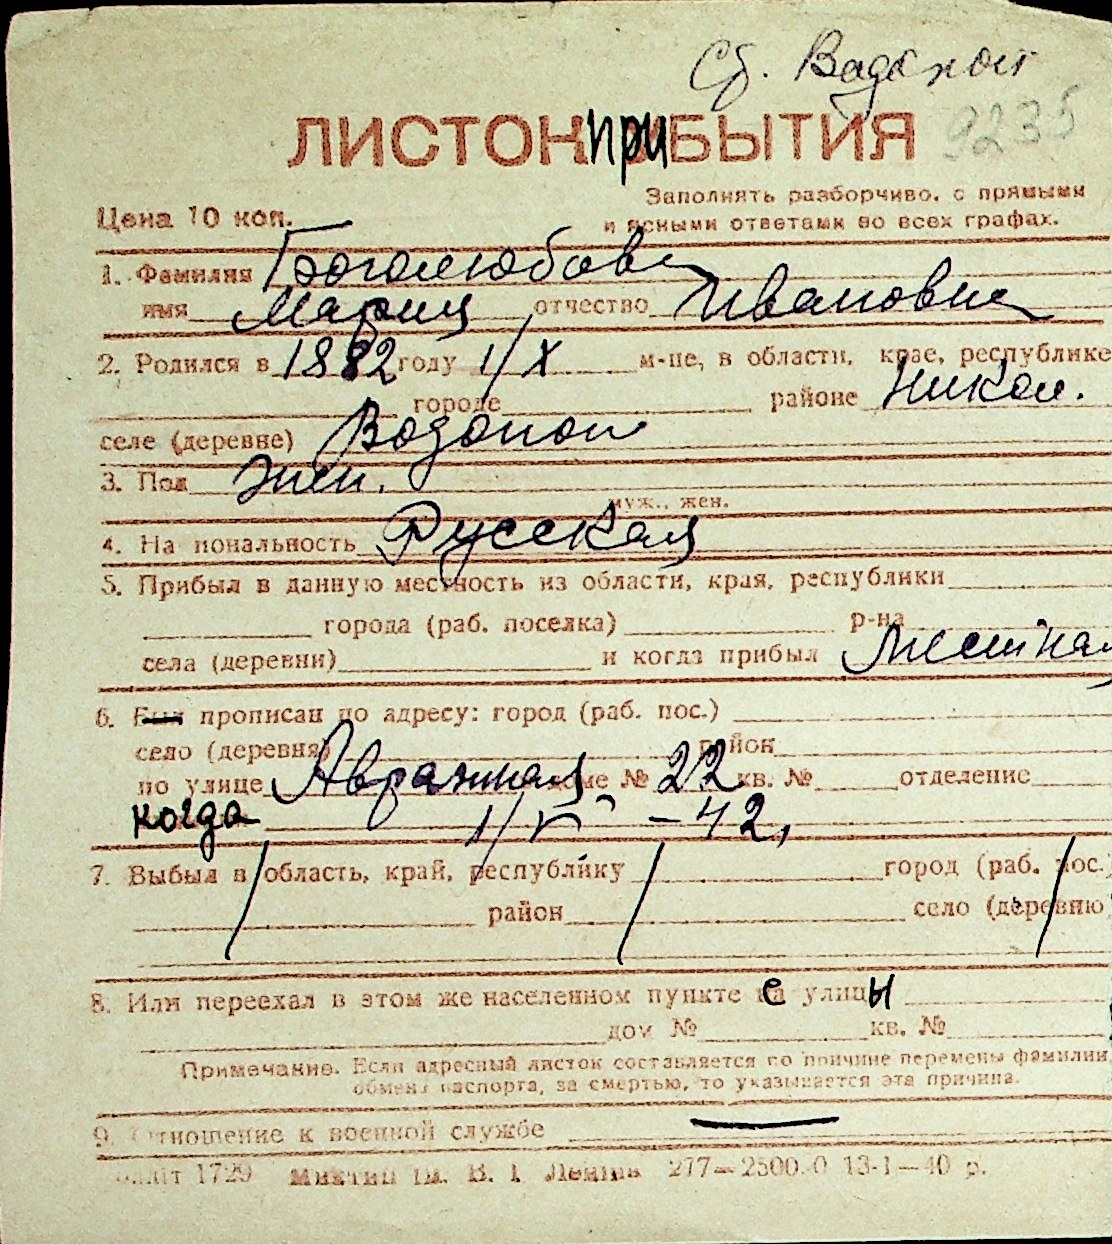 Сд. Водопой
ЛИСТОК ПРИБЫТИЯ 9235
Заполнять разборчиво, с прямыми
Цена 10 коп. и ясными ответами во всех графах.
1. Фамилия Боголюбова
имя Мария отчество Ивановна
2. Родился в 1882 году 1/X м-це, в области, крае, республике
городе районе Никол.
селе (деревне) Водопой
3. Пол жен.
муж., жен.
4. На иональность Русская
5. Прибыл в данную местность из области, края, республики
города (раб. поселка) р-на
села (деревни) и когда прибыл местная
6. Был прописан по адресу: город (раб. пос.)
село (деревня) район
по улице Авражная доме № 22 кв. № отделение
когда 1/V -42,
7. Выбыл в область, край, республику город (раб. пос.)
район село (деревню
8. Или переехал в этом же населенном пункте с улицы
дом № кв. №
Примечание. Если адресный листок составляется по причине перемены фамилии,
обмена паспорта, за смертью, то указывается эта причина.
9. Отношение к военной службе —
1729 В. І Леніна 277—2500.0 13-1—40 р.